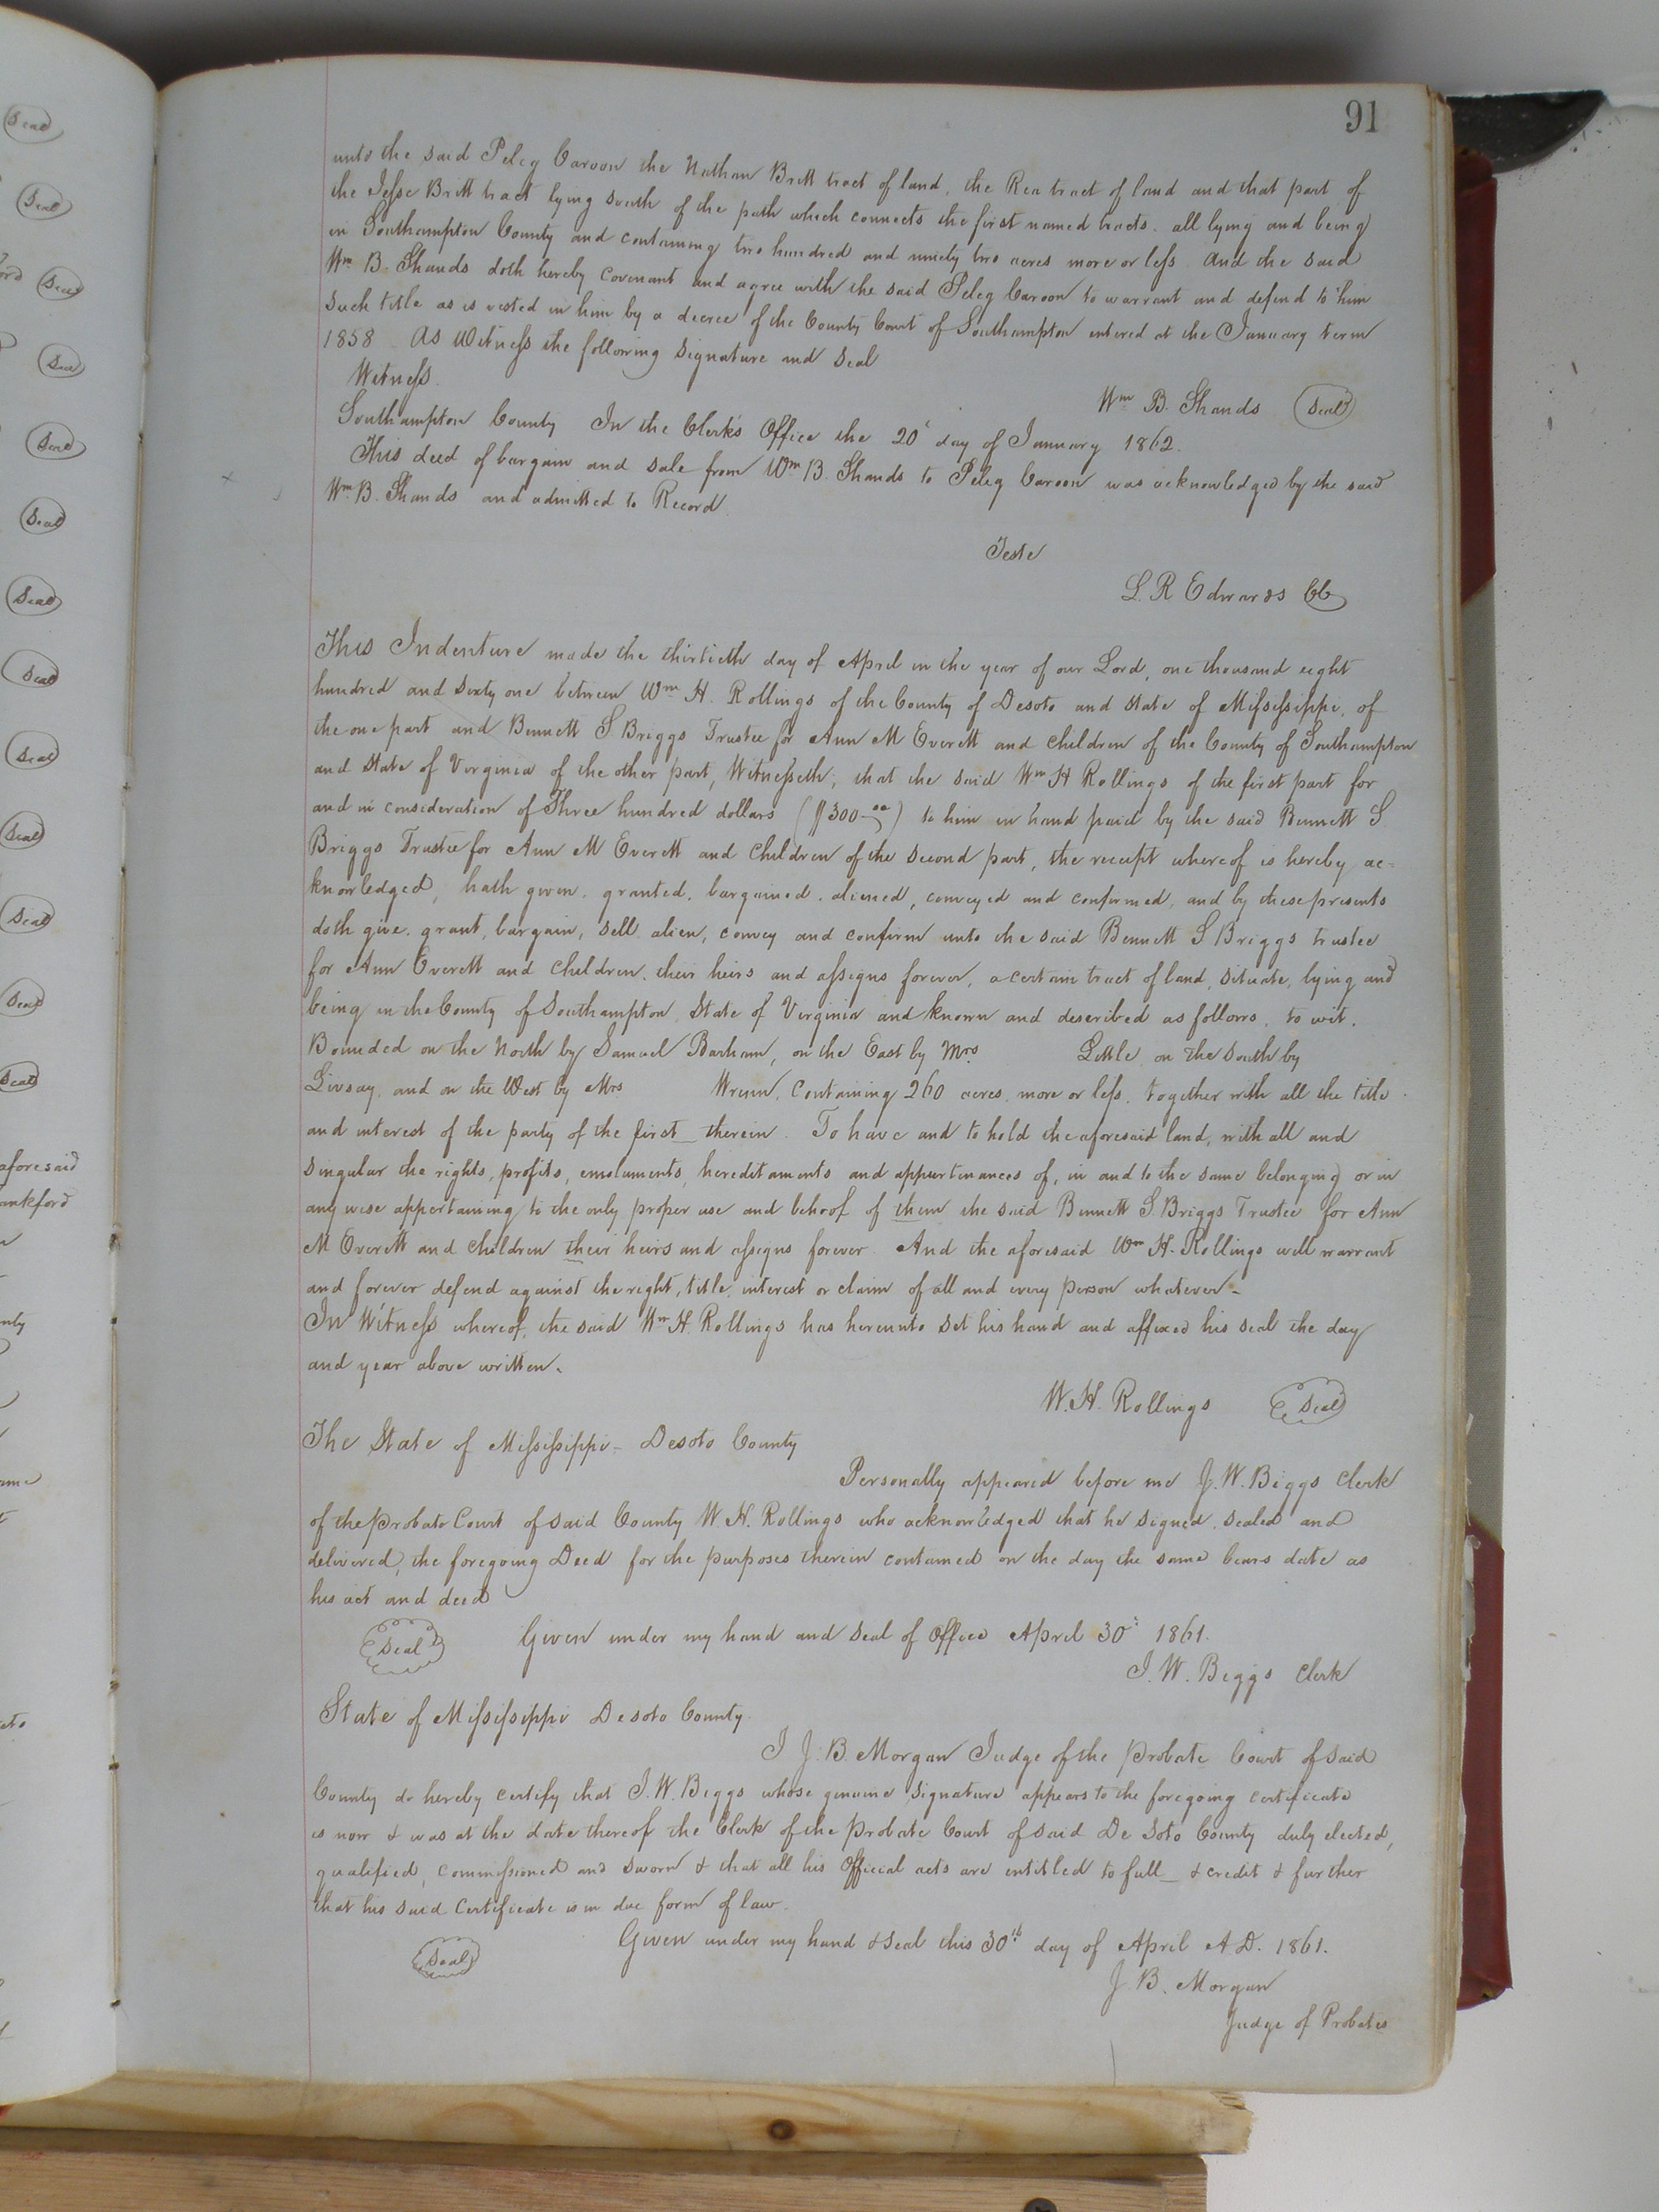 91
unto the said Peleg Caroon the Nathan Britt tract of land, the Rea tract of land and that part of
the Jesse Britt tract lying south of the path which connects the first named tracts. all lying and being
in Southampton County and containing two hundred and ninety two acres more or less And the said
Wm B. Shands doth hereby covenant and agree with the said Peleg Caroon to warrant and defend to him
such title as is vested in him by a decree of the County Court of Southampton entered at the January term
1858 As Witness the following signature and seal
Witness.
Wm B. Shands Seal
Southampton County In the Clerk's Office the 20t day of January 1862.
This deed of bargain and sale from Wm B. Shands to Peleg Caroon was acknowledged by the said
Wm B. Shands and admitted to Record.
Teste
L. R Edwards CC
This Indenture made the thirtieth day of April in the year of our Lord, one thousand eight
hundred and sixty one between Wm H. Rollings of the County of Desoto and State of Mississippi, of
the one part and Bennett S Briggs Trustee for Ann M Everett and children of the County of Southampton
and State of Virginia of the other part, Witnesseth, that the said Wm H Rollings of the first part for
and in consideration of Three hundred dollars ($300.00) to him in hand paid by the said Bennett S
Briggs Trustee for Ann M Everett and Children of the second part, the receipt whereof is hereby ac=
knowledged, hath given. granted. bargained. aliened, conveyed and confirmed, and by these presents
doth give. grant, bargain, sell. alien, convey and confirm unto the said Bennett S Briggs trustee
for Ann Everett and Children. their heirs and assigns forever, a certain tract of land, situate, lying and
being in the County of Southampton, State of Virginia and known and described as follows, to wit.
Bounded on the North by Samuel Barham, on the East by Mrs Little on the South by
Livsay, and on the West by Mrs Wrenn, Containing 260 acres, more or less, together with all the title
and interest of the party of the first_ therein. To have and to hold the aforesaid land, with all and
singular the rights, profits, emoluments, hereditaments and appurtinances of, in and to the same belonging or in
any wise appertaining to the only proper use and behoof of them the said Bennett S. Briggs Trustee for Ann
M Everett and Children their heirs and assigns forever. And the aforesaid Wm H. Rollings will warrant
and forever defend against the right, title, interest or claim of all and every person whatever_
In Witness whereof, the said Wm H. Rollings has hereunto set his hand and affixed his seal the day
and year above written.
W. H. Rollings Seal
The State of Mississippi - Desoto County
Personally appeared before me J. W. Biggs Clerk
of the Probate Court of said County W. H. Rollings who acknowledged that he signed, sealed and
delivered, the foregoing Deed for the purposes therein contained on the day the same bears date as
his act and deed
Seal Given under my hand and seal of Office April 30t 1861.
J. W. Biggs Clerk
State of Mississippi Desoto County.
I J. B. Morgan Judge of the Probate Court of said
County do hereby certify that J. W. Biggs whose genuine signature appears to the foregoing certificate
is now & was at the date thereof the Clerk of the Probate Court of said De Soto County duly elected,
qualified, commissioned and sworn & that all his Official acts are entitled to full_ & credit & further
that his said Certificate is in due form of law.
Seal Given under my hand & seal this 30th day of April A D. 1861.
J B. Morgan
Judge of Probates
Seal
Seal
Seal
Seal
Seal
Seal
Seal
Seal
Seal
Seal
Seal
Seal
Seal
aforesaid
ankford